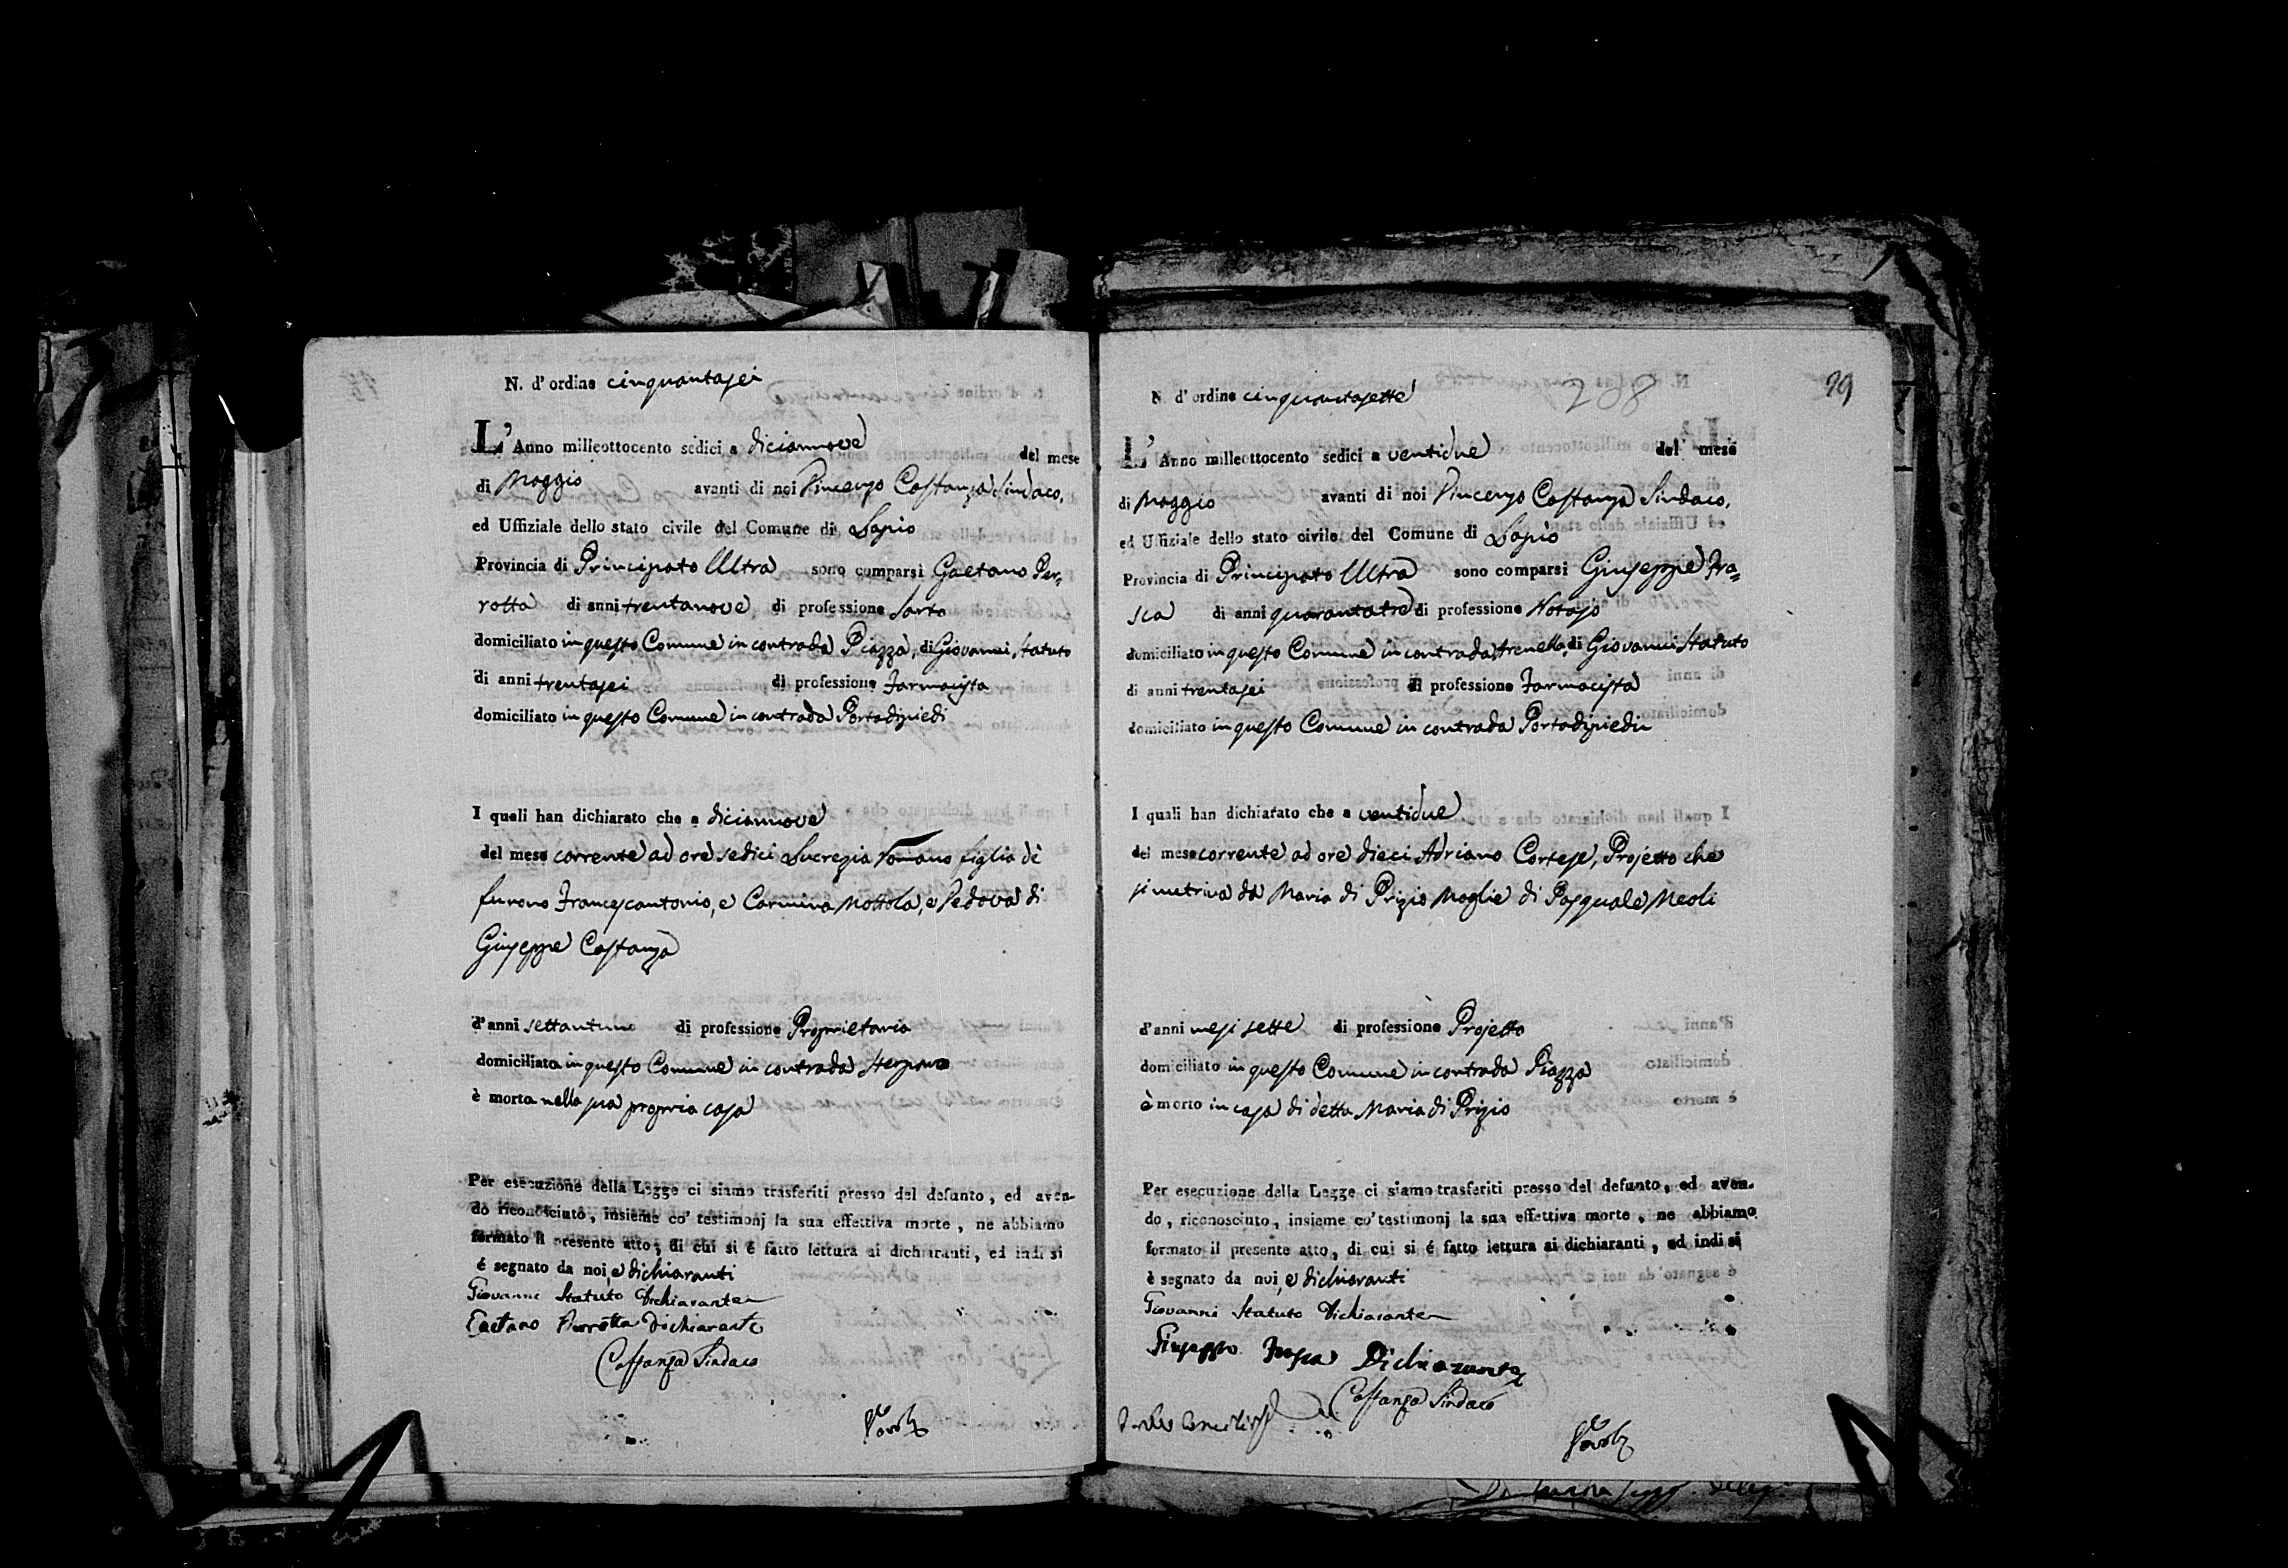 N. d'ordine cinquantasei
L'Anno milleottocento sedici a diciannove del mese
di Maggio avanti di noi Vincenzo Costanza Sindaco,
ed Uffiziale dello stato civile del Comune di Lapio
Provincia di Principato Ultra sono comparsi Gaetano Per-
rotta di anni trentanove di professione Sarto
domiciliato in questo Comune in contrada Piazza, di Giovanni Statuto
di anni trentasei di professione Farmacista
domiciliato in questo Comune in contrada Portadipiedi
I quali han dichiarato che a diciannove
del mese corrente ad ore sedici Lucrezia Romano figlia di
furono Francescantonio, e Carmina Mottola, e Vedova di
Giuseppe Costanza
d'anni settantuno di professione Proprietaria
domiciliata in questo Comune in contrada
è morta nella sua propria casa
Per esecuzione della Legge ci siamo trasferiti presso del defunto, ed aven-
do riconosciuto, insieme co' testimonj la sua effettiva morte, ne abbiamo
formato il presente atto, di cui si é fatto lettura ai dichiaranti, ed indi si
é segnato da noi, e dichiaranti
Giovanni Statuto Dichiarante
Gaetano Perrotta Dichiarante
Costanza Sindaco
N. d'ordine cinquantasette 208 99
L'Anno milleottocento sedici a ventidue del mese
di Maggio avanti di noi Vincenzo Costanza Sindaco,
ed Uffiziale dello stato civile del Comune di Lapio
Provincia di Principato Ultra sono comparsi Giuseppe Fra-
sca di anni quarantatre di professione Notajo
domiciliato in questo Comune in contrada di Giovanni Statuto
di anni trentasei di professione Farmacista
domiciliato in questo Comune in contrada Portadipiedi
I quali han dichiarato che a ventidue
del mese corrente ad ore dieci Adriano Cortese, Projetto che
si nutriva da Maria di Prizio Moglie di Pasquale Meoli
d'anni mesi sette di professione Projetto
domiciliato in questo Comune in contrada Piazza
è morto in casa di detta Maria di Prizio
Per esecuzione della Legge ci siamo trasferiti presso del defunto, ed aven-
do, riconosciuto, insieme co' testimonj la sua effettiva morte, ne abbiamo
formato il presente atto, di cui si é fatto lettura ai dichiaranti, ed indi si
è segnato da noi, e dichiaranti
Giovanni Statuto Dichiarante
Giuseppe Frasca Dichiarante
Costanza Sindaco